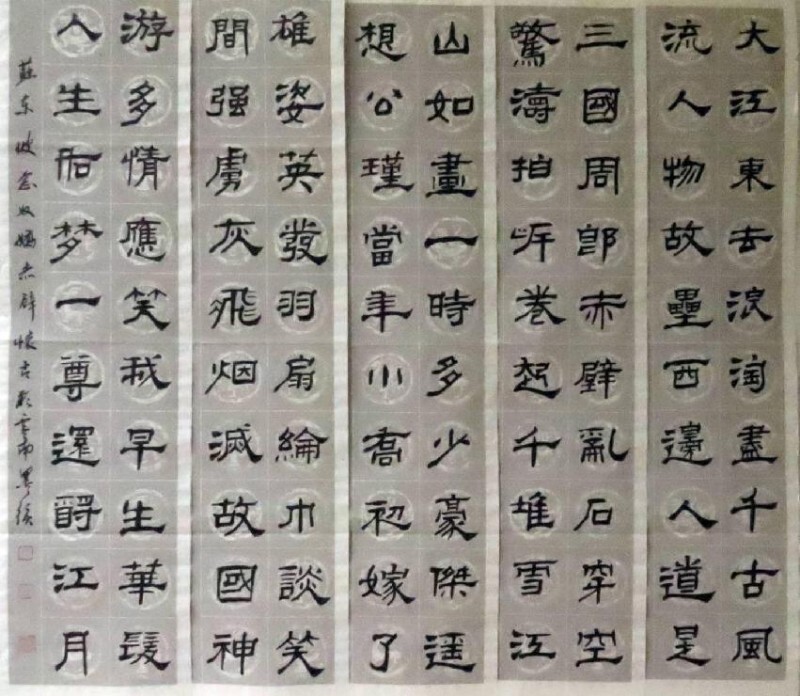 大江東去浪淘盡千古風
流人物故壘西邊人道是
三國周郎赤壁亂石穿空
驚濤拍岸卷起千堆雪江
山如畫一時多少豪傑遥
想公瑾當年小喬初嫁了
雄姿英發羽扇綸巾談笑
間强虜灰飛烟滅故國神
游多情應笑我早生華髮
人生如梦一尊還酹江月
蘇东坡念奴嬌赤壁懷古於雲南